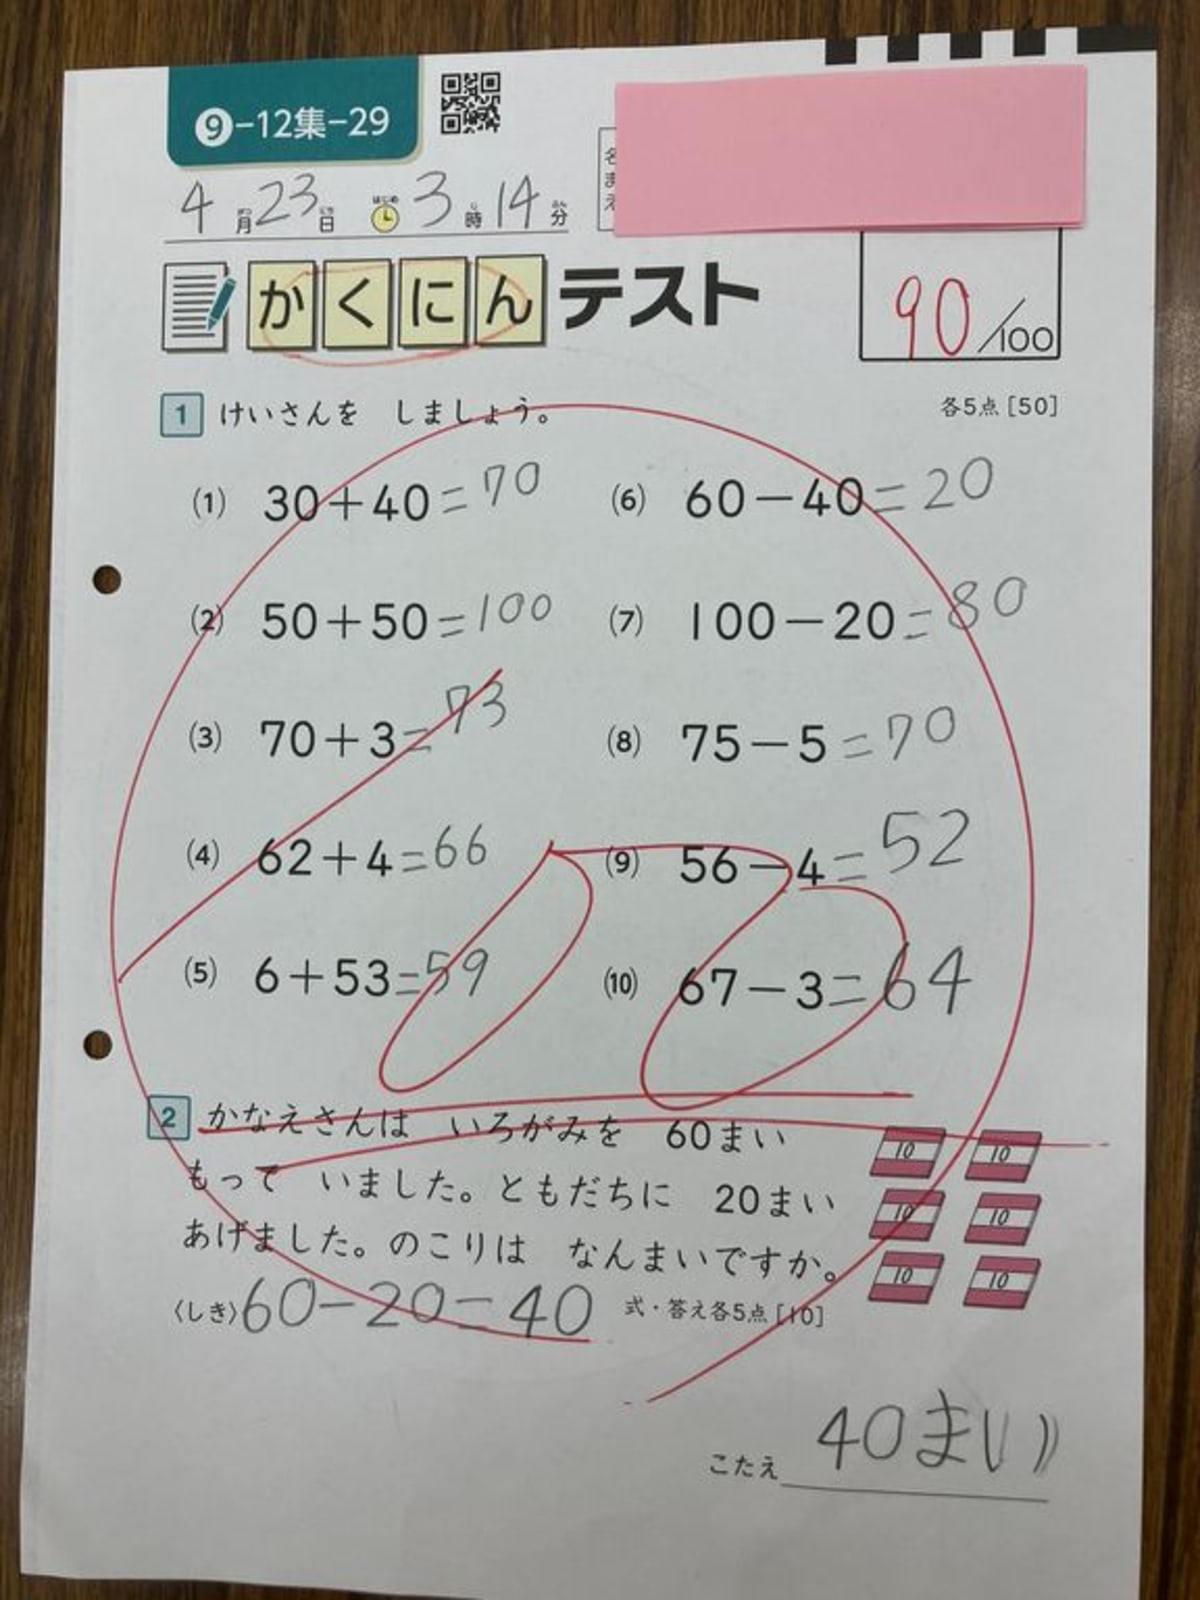 ❾-12集-29
4月23日 はじめ 3時14分
名まえ
かくにんテスト
90/100
1 けいさんを しましょう。 各5点[50]
(1) 30+40=70 (6) 60-40=20
(2) 50+50=100 (7) 100-20=80
(3) 70+3=73 (8) 75-5=70
(4) 62+4=66 (9) 56-4=52
(5) 6+53=59 (10) 67-3=64
2 かなえさんは いろがみを 60まい
もって いました。ともだちに 20まい
あげました。のこりは なんまいですか。
10 10
10 10
10 10
〈しき〉60-20=40 式・答え各5点[10]
こたえ 40まい